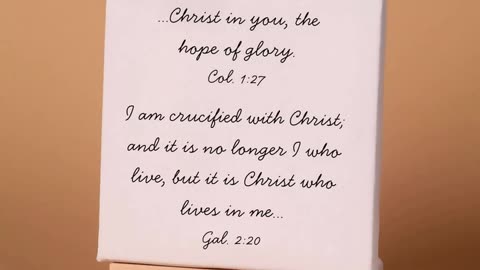 ...Christ in you, the
hope of glory.
Col. 1:27
I am crucified with Christ;
and it is no longer I who
live, but it is Christ who
lives in me...
Gal. 2:20